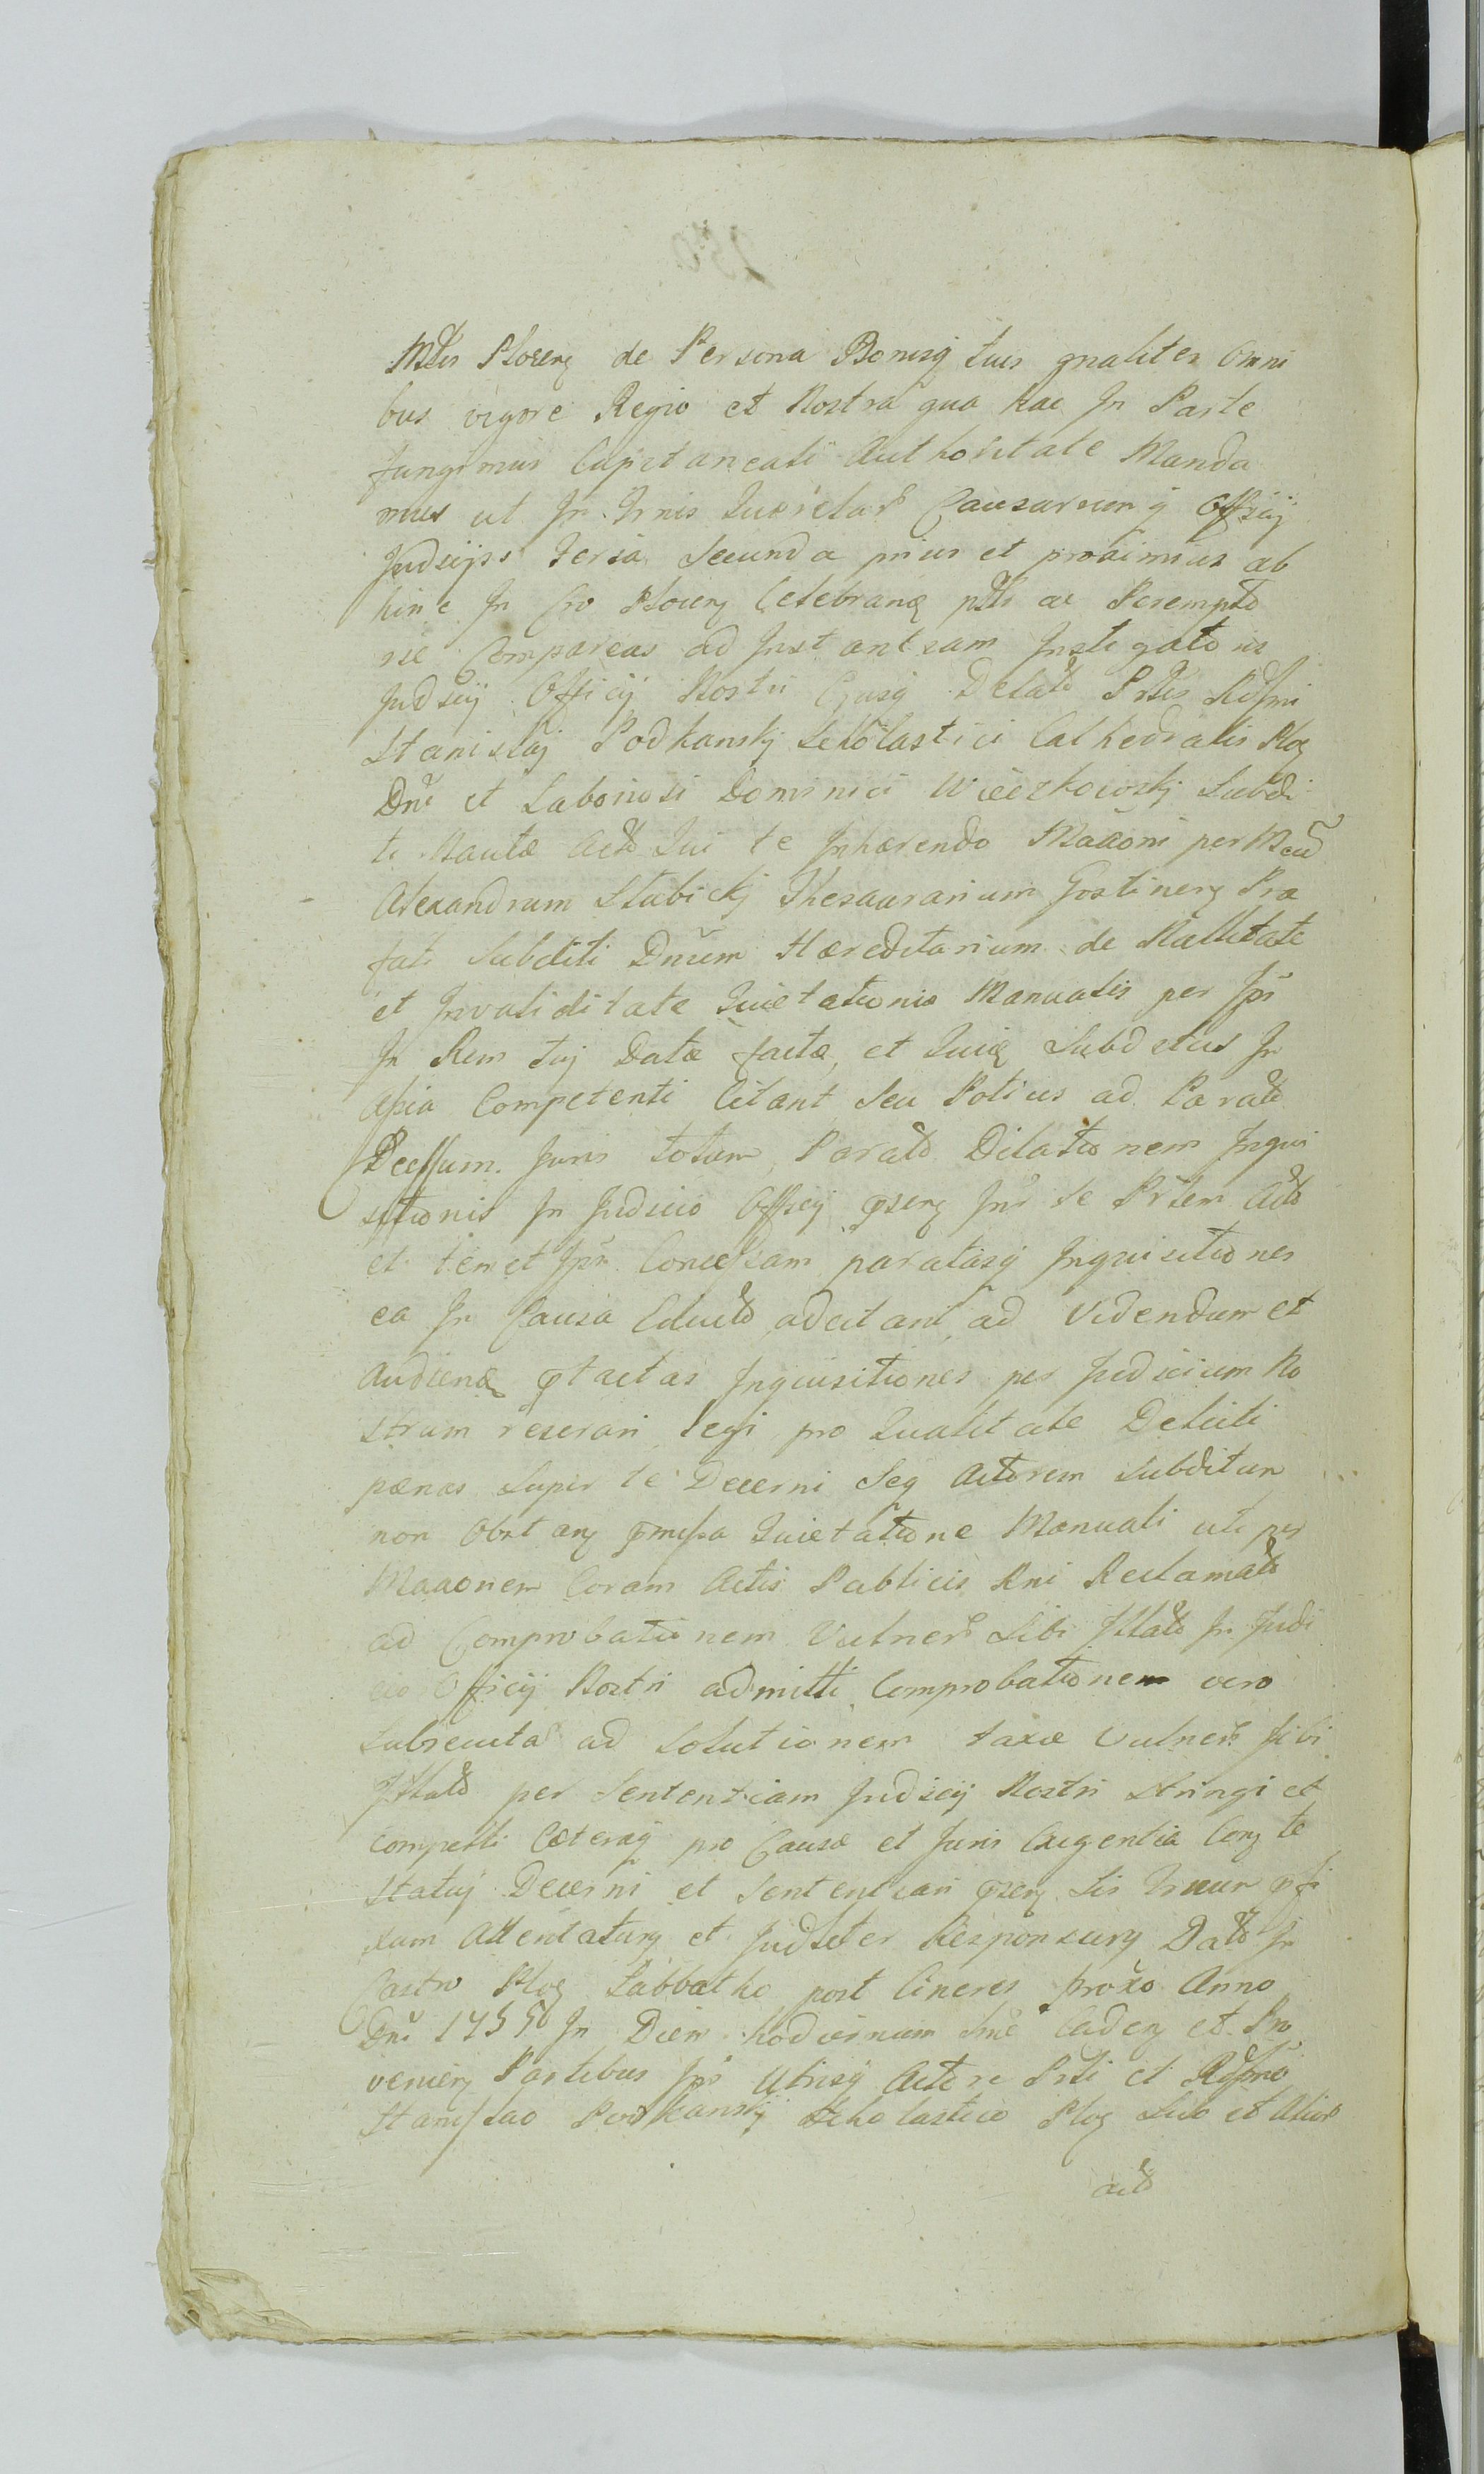 Mttis Plocen de Persona Bonisq tuis gnaliter Omni
bus vigore Regio et Nostra qua hac In Parte
fungimur Capitaneali Authoritate Manda
mus ut In Trnis Quærelar Causarumq Officij
Judicijs Feria Secunda prius et proximius ab
hinc In Cro Plocen Celebran ac Perempto
rie Compareas ad Instantiam Instigatoris
Judicij Officij Nostri Ejusq Delato
Stanislaj Podkanskj Scholastici Cathedralis Ploc
Dni et Laboriosi Dominici Wieczkowskj Subdi
ti Nautæ Acto Qui te Inhærendo Maaoni per
Alexandrum Slubickj Thesaurarium Gostinen Præ
fati Subditi Dnum Hæreditarium de Nullitate
et Invaliditate Quietationis Manualis per Ips
In Rem tuj Datæ factæ, et Subditus In
Competenti Citant Seu Potius ad Parato
Pcessum Juris totum Parato Dilationem Inqui
sitionis In Judicio Officij psen Inr te Prtem Acto
et temet Ipm Concessam paratasq Inquisitiones
ea In Causa Educto adcitant ad Videndum et
Audiend ptactas Inquisitiones per Judicium No
strum reserari legi pro Qualitate Delicti
pænas Super te Decerni Seq Actorem Subditum
non Obstan pmissa Quietatione Manuali uti per
Maaonem Coram Actis Publicis Rni Reclamato
ad Comprobationem Vulner Sibi Illato In Judi
cio Officij Nostri admitti Comprobationem vero
Subsecuta ad Solutionem taxæ Vulner Sibi
Illato per Sententiam Judicij Nostri Stringi et
Compelli Cæteraq pro Causæ et Juris Exigentia Con te
Statuj Decerni et Sententiari psen Sis Trmum pfi
xum Attentatury et Judliter Responsury Dato In
Castro Ploc Sabbatho post Cineres proxo Anno
Dni 1755to In Diem hodiernum Caden et Pro
venien Partibus Ips Utrisq Actore Prti et
Stanislao Podkanskj Scholastico Ploc Suo et Alior
acto